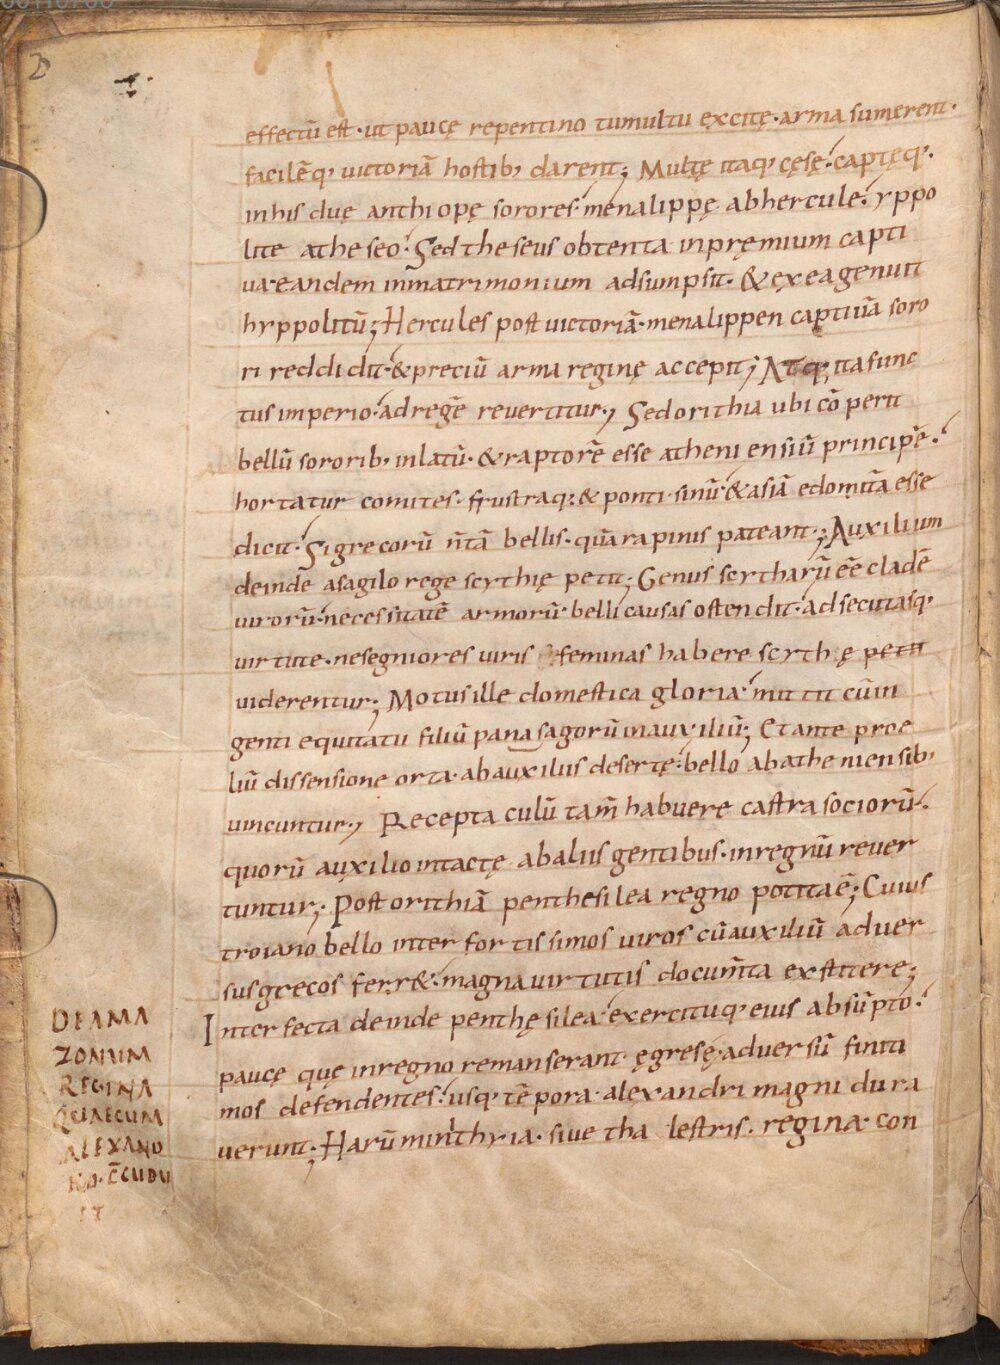 effectū est · ut paucę repentino tumultu excitę · arma sumerent ·
facilēq; uictoriā hostib; darent; Multę itaq; cęsę · captęq; ·
inhis duę anthiopę sorores menalippę abhercule · yppo
lite atheseo · Sed theseus obtenta inpręmium capti
ua · eandem inmatrimonium adsumpsit · & exeagenuit
hyppolitū; Hercules post uictoriā · menalippen captiuā soro
ri reddidit · & preciū arma reginę accepit; Atq; ita func
tus imperio · adregē reuertitur; Sedorithia ubi cōperit
bellū sororib; inlatū · & raptorē esse atheniensiū principē ·
hortatur comites · frustraq; & ponti sinū & asiā edomitā esse
dicit · Sigrecorū n̄tā bellis · quā rapinis pateant; Auxilium
deinde asagilo rege scythię petit; Genus scytharū eē cladē
uirorū · necessitatē armorū belli causas ostendit · adsecutasq;
uirtute · nesegniores uiris feminas habere scythę petit
uiderentur; Motus ille domestica gloria · mittit cū in
genti equitatu filiū panasagorū inauxiliū; Et ante proe
liū dissensione orta · abauxiliis desertę · bello abatheniensib;
uincuntur; Recepta culū tam̄ habuere castra sociorū ·
quorū auxilio intactę abaliis gentibus · inregnū reuer
tuntur; Post orithiā penthesilea regno potita ē; Cuius
troiano bello inter fortissimos uiros cū auxiliū aduer
sus grecos ferr& · magna uirtutis docum̄ta exstitere;
Interfecta deinde penthęsilea · exercituq; eius absūpto ·
paucę quę inregno remanserant ęgresę · aduersū finiti
mos defendentes · usq; tēpora · alexandri magni dura
uerunt; Harū minthyia · siue thalestris · regina · con
DEAMA
ZONUM
REGINA
QUAECUM
ALEXAND
RO · C̄CUBU
IT